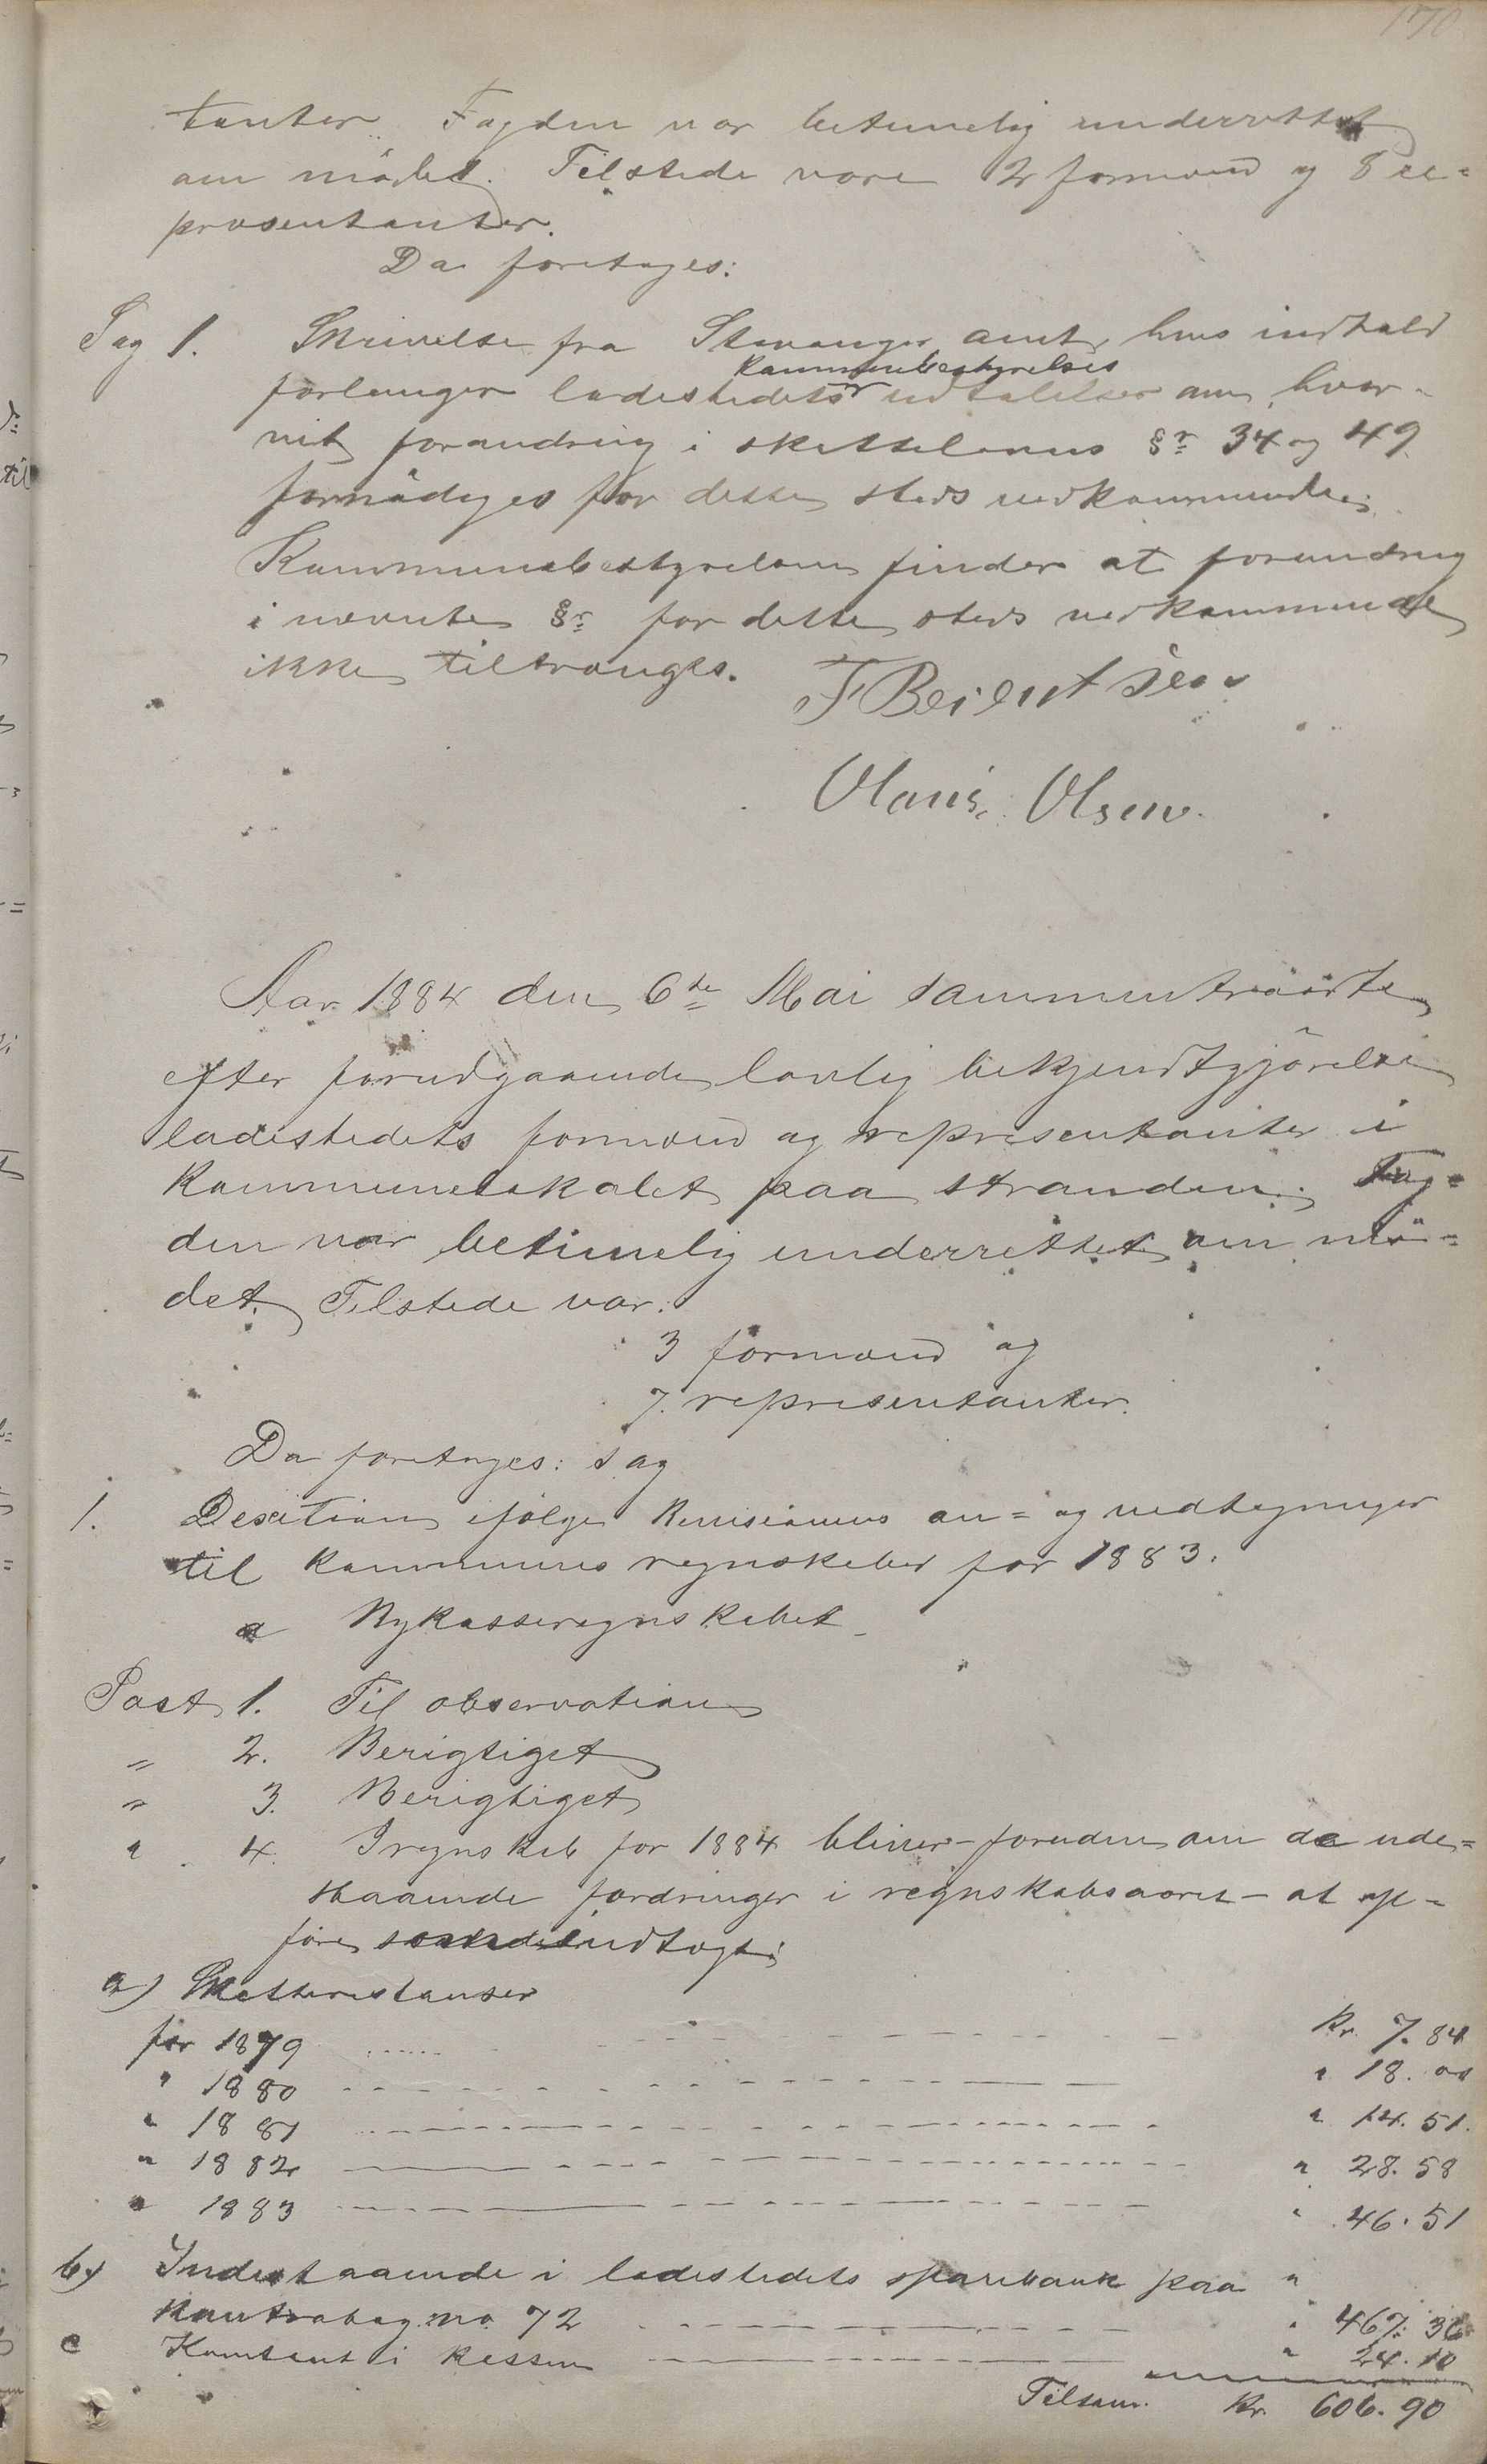 170.
tanter. Fogden var betimelig underrettet
om mödet. Tilstede vare 2 formænd og 8 re=
præsentanter.
Da foretoges:
Sag 1. Skrivelse fra Stavanger amt, hvis indhold
kommunebestyrelses
forlanger ladestedets udtalelser om, hvor-
vidt forandring i skattelovens §r 34 og 49
fornödiges for dette steds vedkommende.
Kommunebestyrelsen finder at forandring
i nævnte §r for dette steds vedkommende
ikke tiltrænges.
T Berentsen
Olaus Olsen.
Aar 1884 den 6te Mai sammentraadte
efter forudgaaende lovlig bekjendtgjörelse
ladestedets formænd og representanter i
kommunelokalet paa stranden. Fog=
den var betimelig underrettet om mö=
det. Tilstede var:
3 formænd og
7 representanter.
Da foretoges: sag
1. Desition ifölge Revisionens an= og udtegninger
til kommunens regnskaber for 1883.
a Bykasseregnskabet
Post 1. Til observation
" 2. Berigtiget
" 3. Berigtiget
" 4. I regnskab for 1884 bliver - foruden om de ude=
staaende fordringer i regnskabsaaret - at op=
före indtægt:
a) Skatterestanser
for 1879 Kr. 7. 84
" 1880 " 18. 00
" 1881 " 14. 51.
" 1882 " 28. 58
" 1883 " 46. 51
b) Indestaaende i ladestedets sparebank paa "
kontrabog no. 72 " 467. 36
c Kontant i kassen " 24. 10
Tilsam. Kr. 606. 90